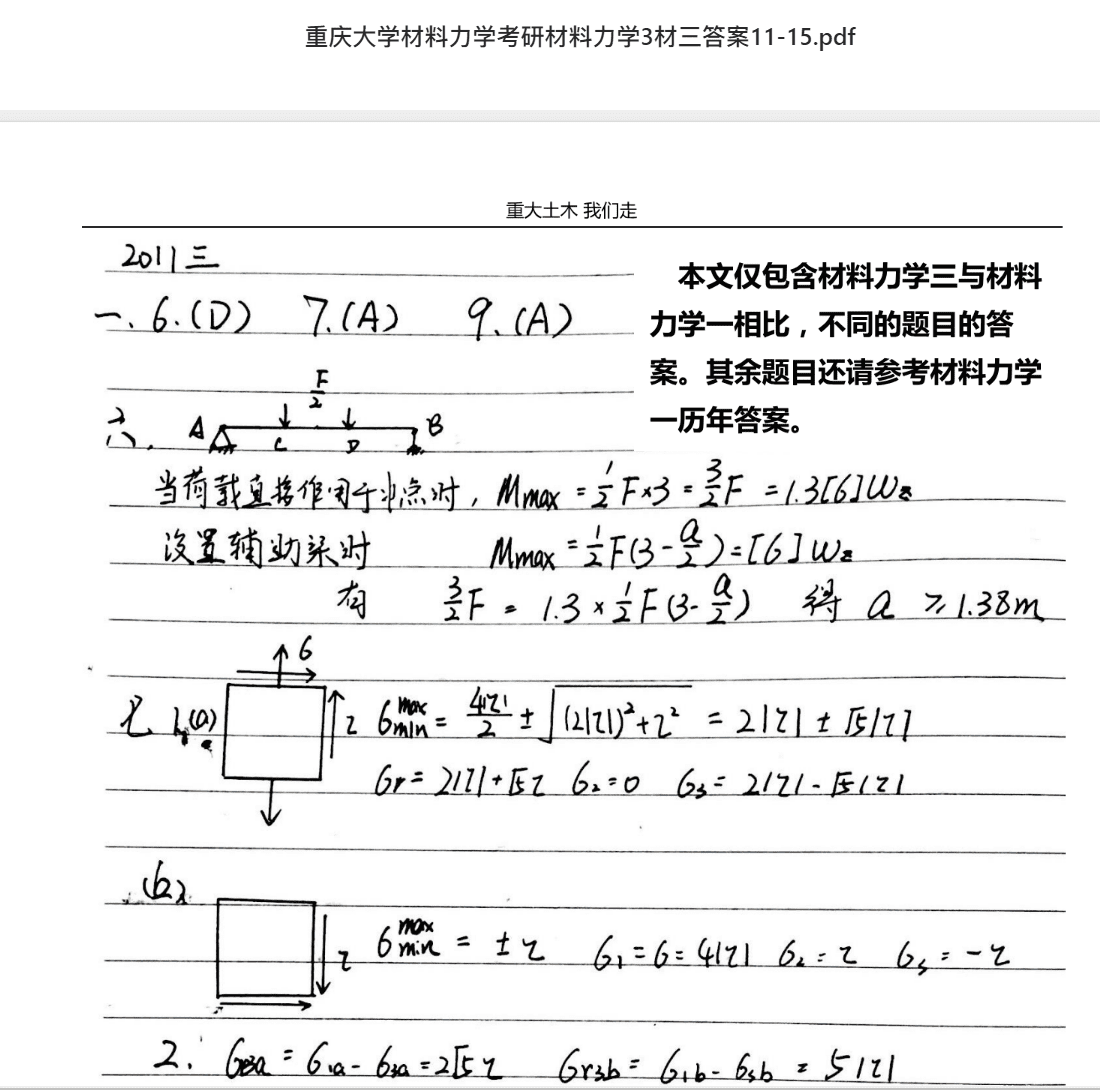 重庆大学材料力学考研材料力学3材三答案11-15.pdf
重大土木 我们走
2011三
本文仅包含材料力学三与材料
力学一相比，不同的题目的答
案。其余题目还请参考材料力学
一历年答案。
一. 6.(D) 7.(A) 9.(A)
F/2
六. A C D B
当荷载直接作用于中点时, Mmax = 1/2 F×3 = 3/2 F = 1.3[σ]Wz
设置辅助梁时 Mmax = 1/2 F(3-a/2) = [σ]Wz
有 3/2 F = 1.3 × 1/2 F(3-a/2) 得 a ≥ 1.38m
σ
七 1.(a) τ σ max min = 4|τ|/2 ± √((2|τ|)²+τ²) = 2|τ| ± √5|τ|
σr = 2|τ|+√5τ σ₂=0 σ₃= 2|τ|-√5|τ|
(b)
τ σ max min = ±τ σ₁=σ=4|τ| σ₂=τ σ₃=-τ
2. σr3a = σ1a - σ3a = 2√5τ σr3b = σ1b - σ3b = 5|τ|